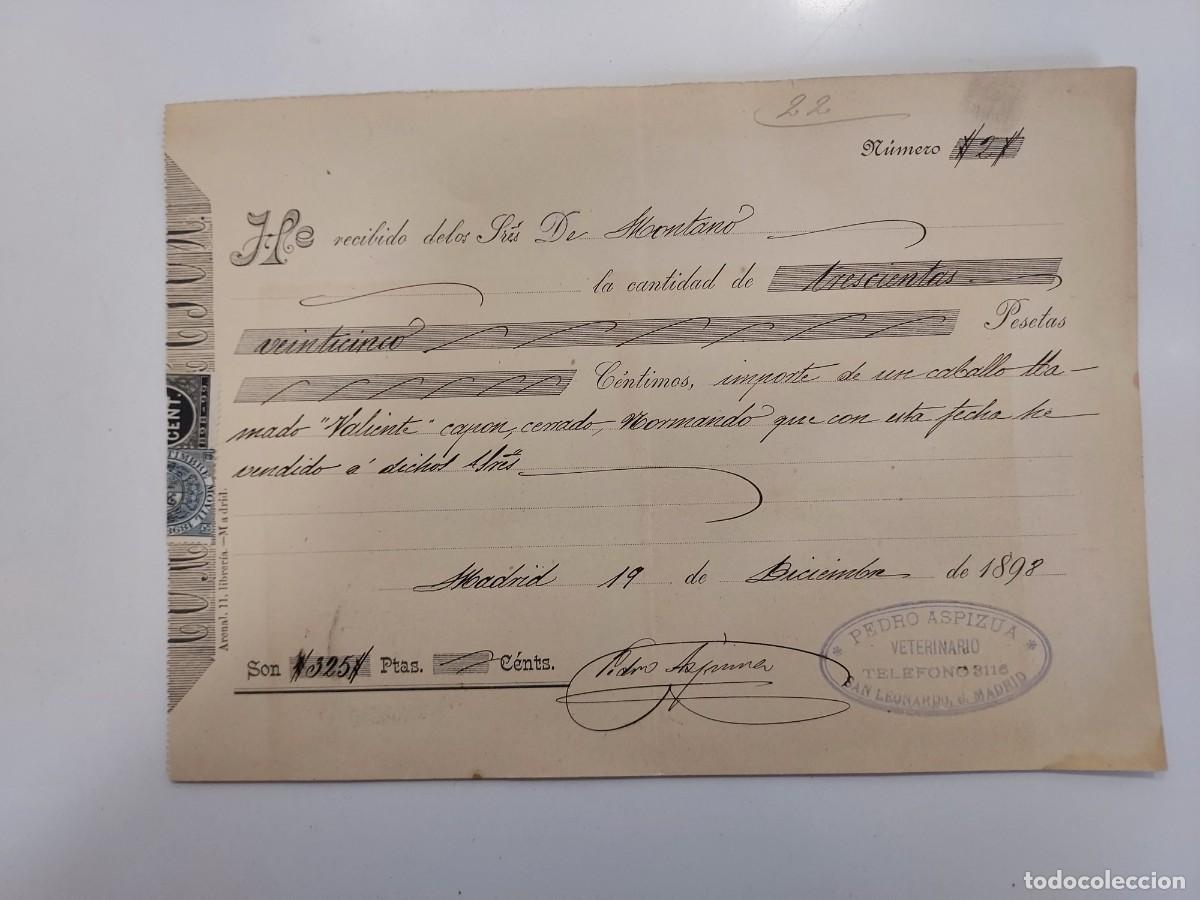 22
Número #2#
He recibido de los Sres De Montano
la cantidad de trescientas
veinticinco Pesetas
Céntimos, importe de un caballo lla-
mado "Valiente" capon, cerrado, Normando que con esta fecha he
vendido á dichos Sres
Madrid 19 de Diciembre de 1898
Son #325# Ptas. Cénts.
Pedro Aspizua
* PEDRO ASPIZUA *
VETERINARIO
TELEFONO 3116
SAN LEONARDO, 6. MADRID
CENT.
TIMBRE MÓVIL
1898
Arenal. 11, librería.—Madrid.
todocoleccion